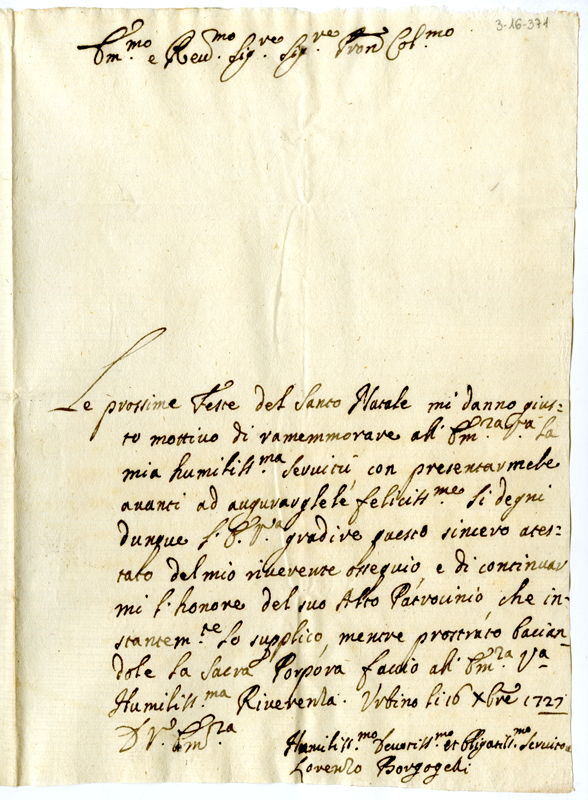 3-16-371
Em.mo e Reu.mo Sig.re Sig.re Pron Col.mo
Le prossime Feste del Santo Natale mi danno gius=
to mottivo di ramemmorare all' Em.za V.a la
mia humiliss.ma Seruitù con presentarmele
auanti ad augurarglele feliciss.me Si degni
dunque l' E. V.a gradire questo sincero ates=
tato del mio riuerente ossequio e di continuar
mi l' honore del suo Alto Patrocinio, che in=
stantem.te Lo supplico, mentre prostrato bacian=
dole la Sacra Porpora faccio all' Em.za V.a
Humiliss.ma Riuerenza. Vrbino li 16 Xbre 1727
D V.a Em.za
Humiliss.mo Deuotiss.mo et Obligatiss.mo Seruito
Lorenzo Borgogelli